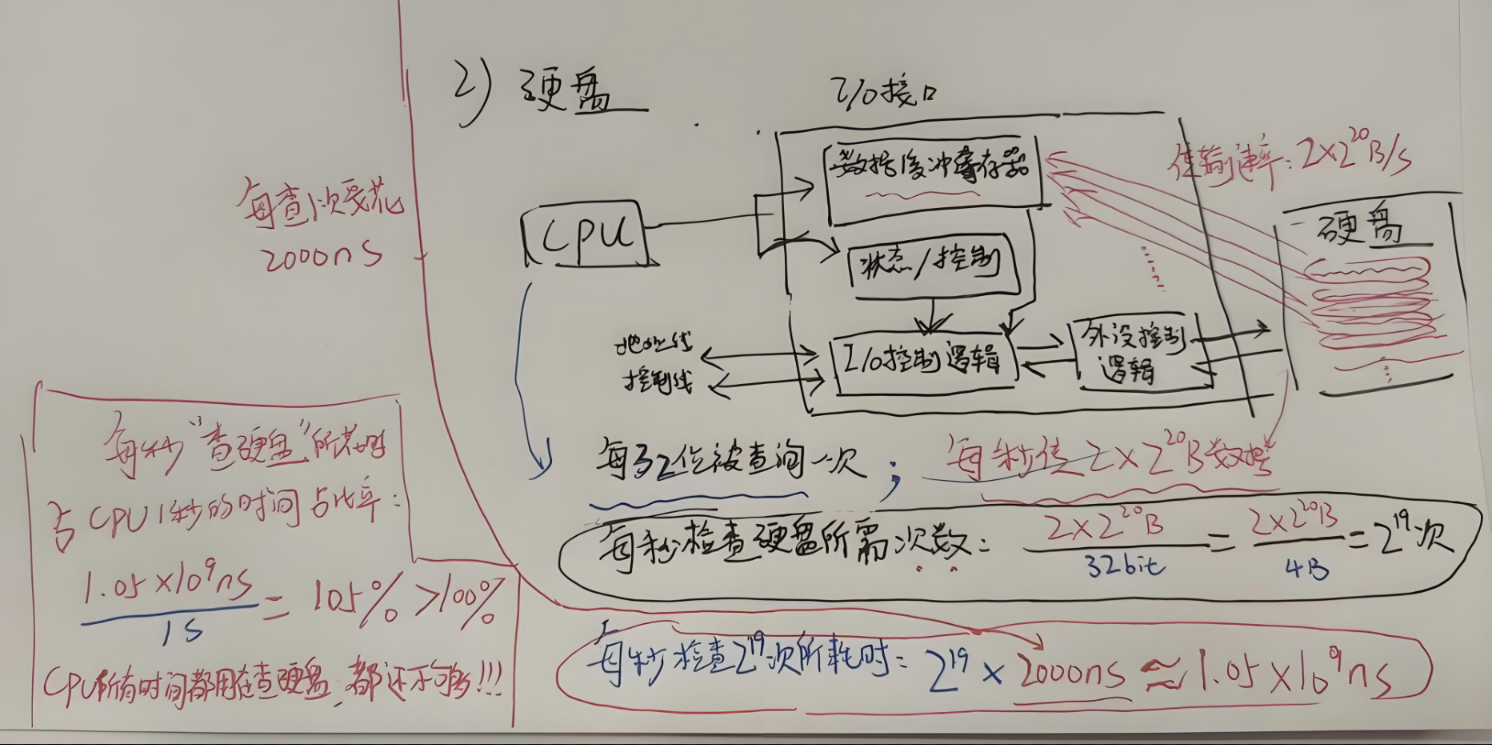 2) 硬盘
I/O接口
数据缓冲寄存器
传输速率: 2×2²⁰B/S
每查1次要花
2000ns
CPU
硬盘
状态/控制
地址线
控制线
I/O控制逻辑
外设控制
逻辑
每32位被查询一次; 每秒传2×2²⁰B数据
每秒检查硬盘所需次数: 2×2²⁰B/32bit = 2×2²⁰B/4B = 2¹⁹次
每秒检查2¹⁹次所耗时: 2¹⁹×2000ns≈1.05×10⁹ns
每秒"查硬盘"所花时
占CPU1秒的时间占比率:
1.05×10⁹ns/1S = 105%>100%
CPU所有时间都用在查硬盘,都还不够!!!